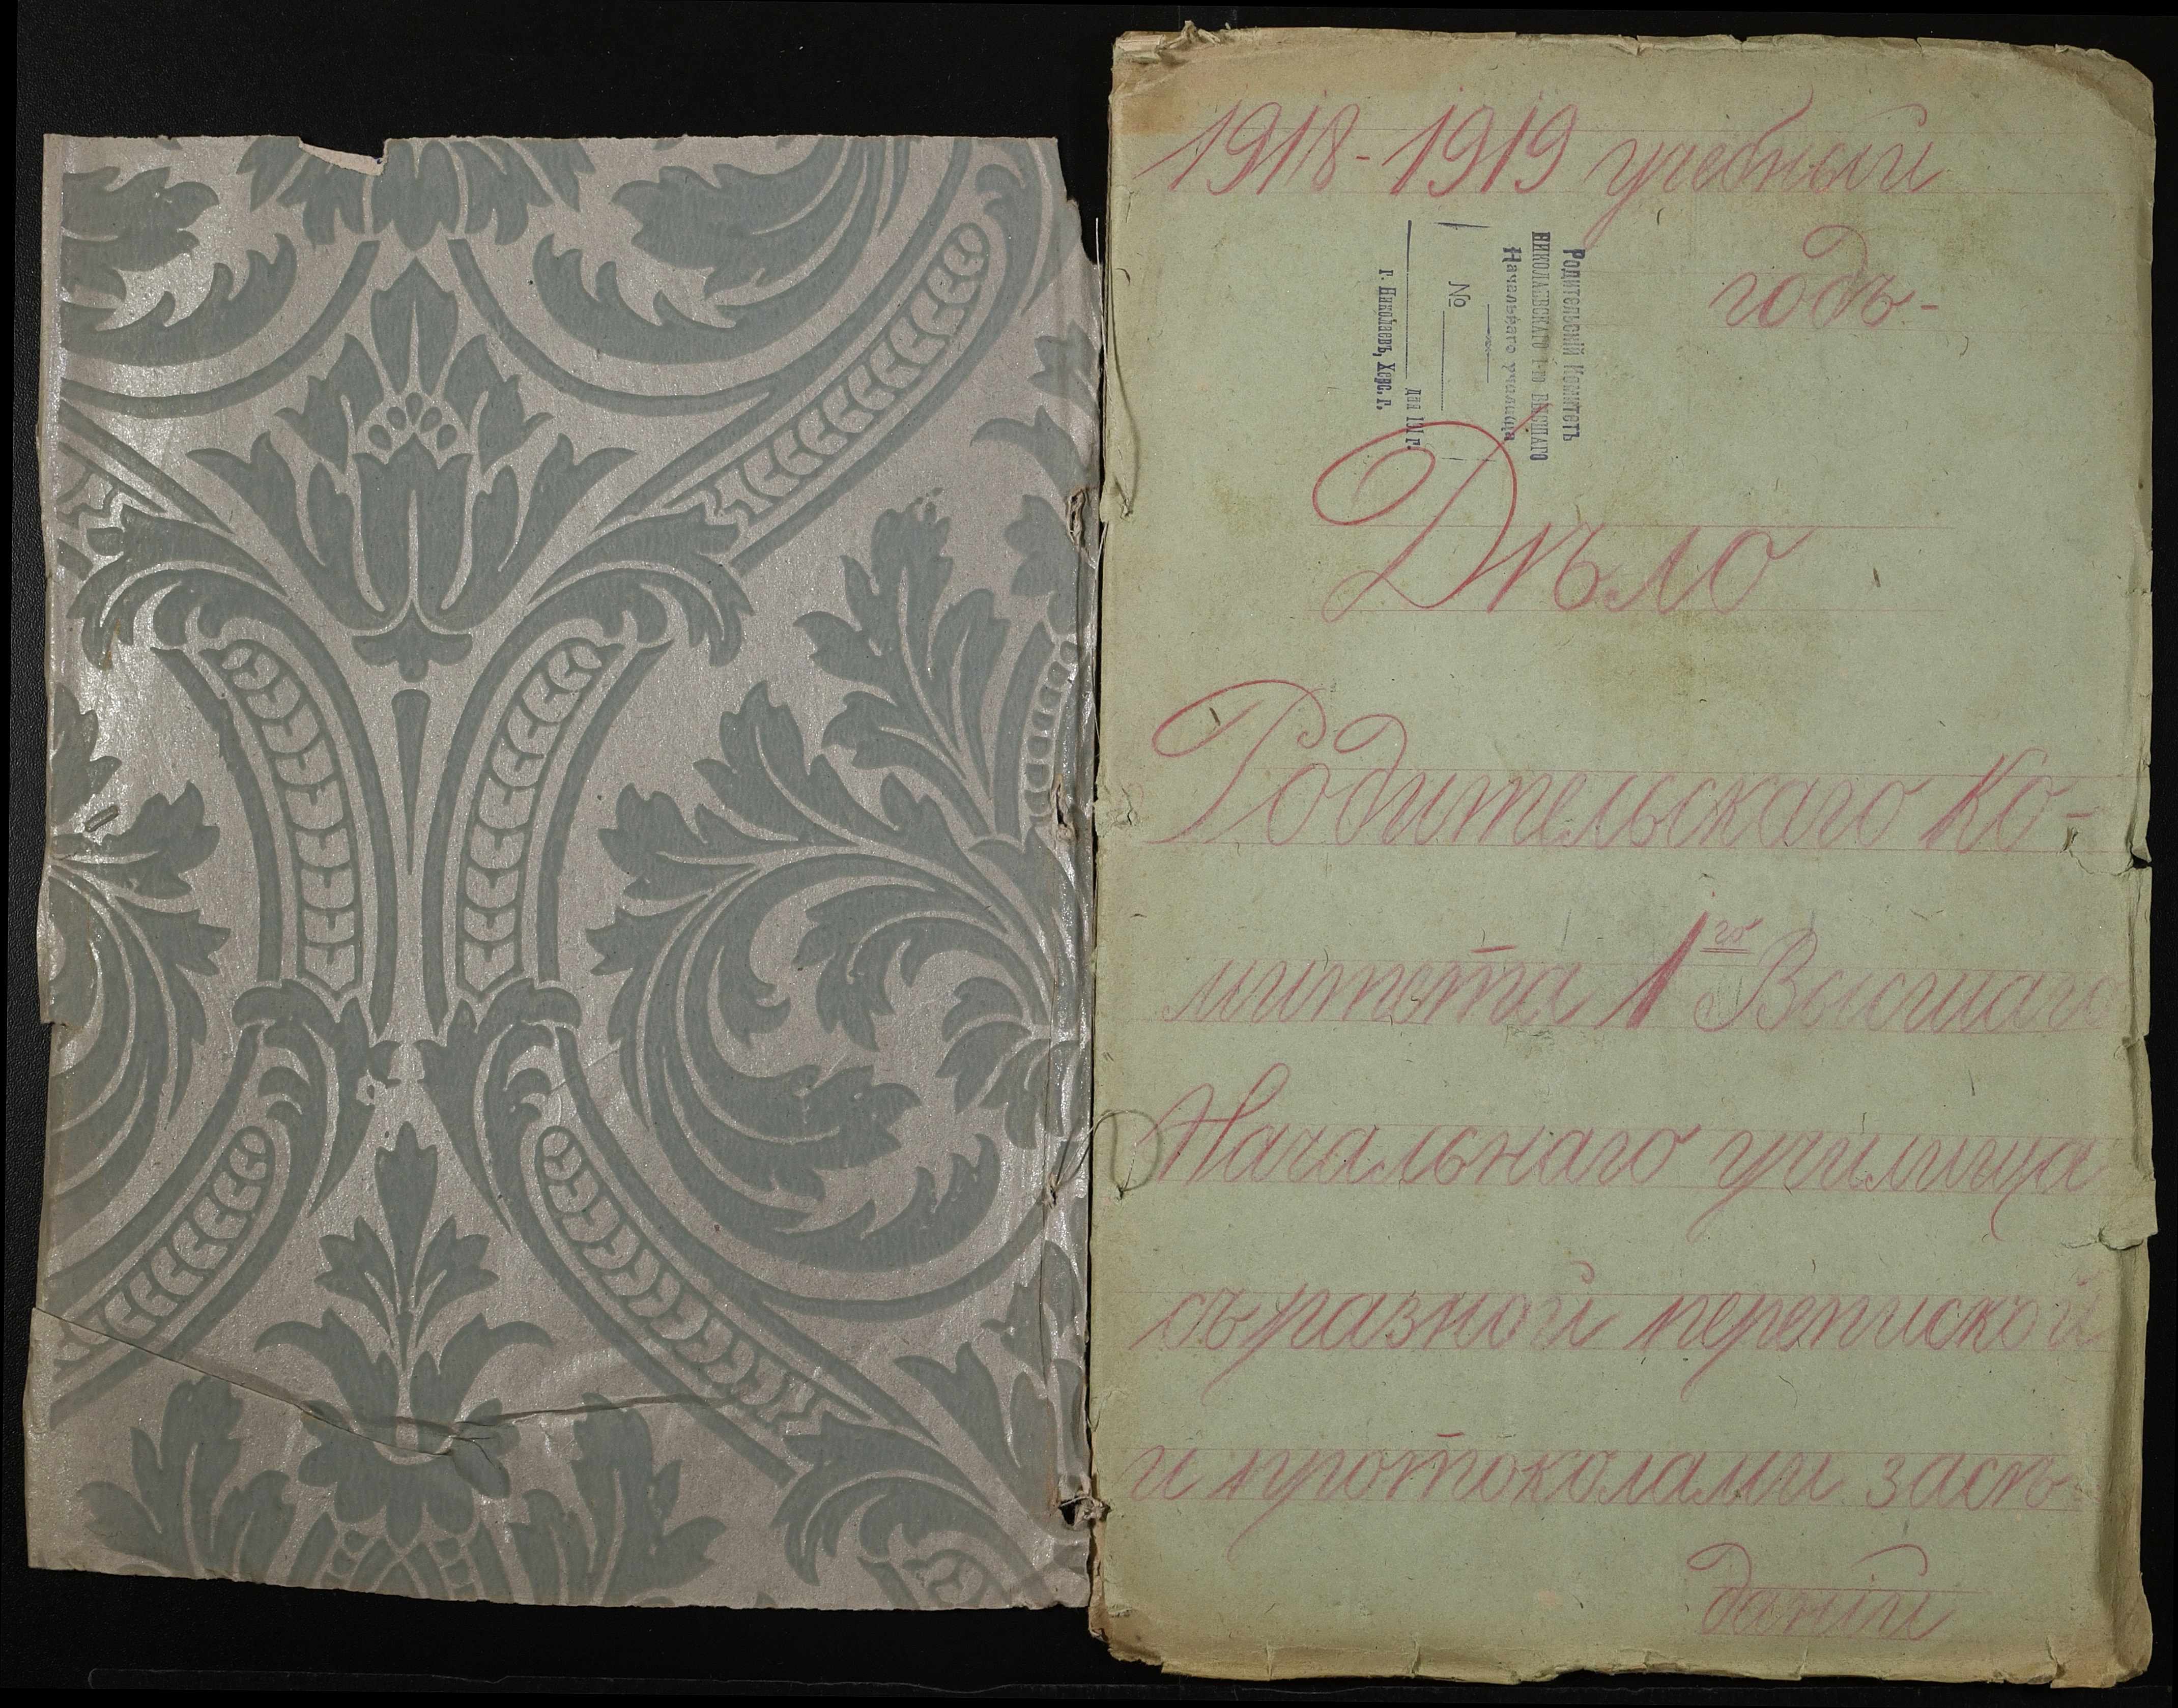 1918-1919 учебный
годъ-
Родительскій Комитетъ
НИКОЛАЕВСКАГО 1-го ВЫСШАГО
Начальнаго училища
№
для 191 г.
г. Николаевъ, Херс. г.
Дѣло
Родительскаго Ко-
митета 1го Высшаго
Начальнаго училища
съ разной перепиской
и протоколами засѣ-
даній